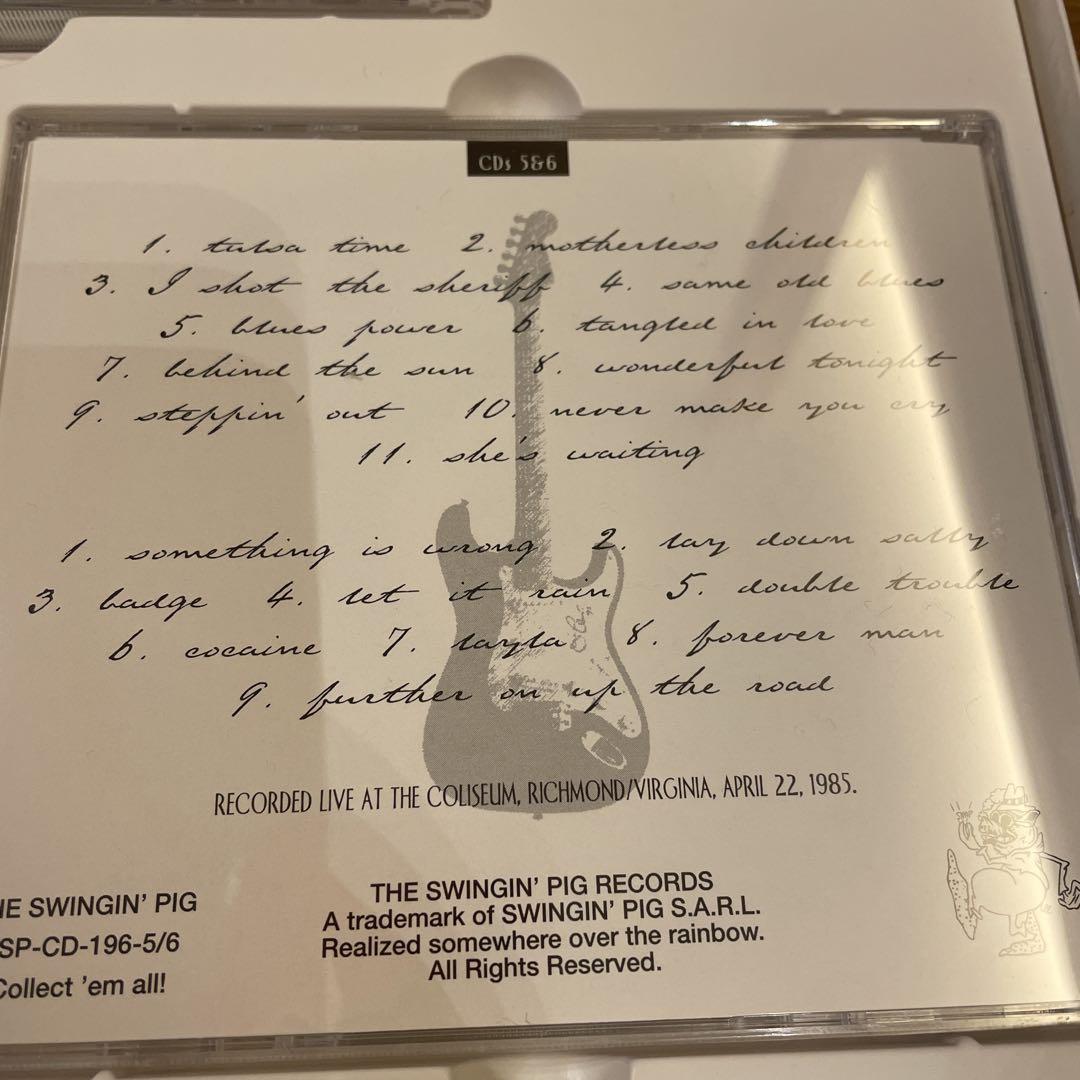 CDs 5&6
1. tulsa time 2. motherless children
3. I shot the sheriff 4. same old blues
5. blues power 6. tangled in love
7. behind the sun 8. wonderful tonight
9. steppin' out 10. never make you cry
11. she's waiting
1. something is wrong 2. lay down sally
3. badge 4. let it rain 5. double trouble
6. cocaine 7. layla 8. forever man
9. further on up the road
RECORDED LIVE AT THE COLISEUM, RICHMOND/VIRGINIA, APRIL 22, 1985.
SWINGIN' PIG
SP-CD-196-5/6
Collect 'em all!
THE SWINGIN' PIG RECORDS
A trademark of SWINGIN' PIG S.A.R.L.
Realized somewhere over the rainbow.
All Rights Reserved.